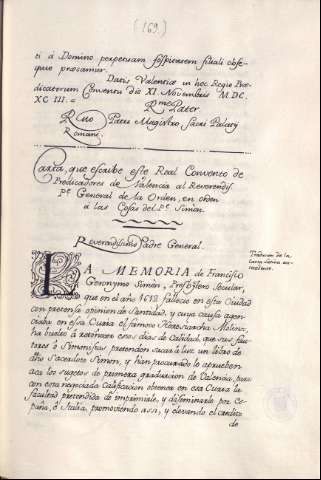 (169)
ti á Domino perpetuam sospitatem filiali obse-
quio precamur.
Datis Valentiæ in hoc Regio Præ-
dicatorum Conventu die XI. Novembris M.DC.
XC III. =
Rme Pater
Rmo Patri Magistro Sacri Palatij
Romane.
Carta, que escribe este Real Convento de
Predicadores de Valencia al Reverendis.
Pe. General de la Orden, en orden
á las Cosas del Pe. Simon.
Reverendissimo Padre General.
Traducion de la
Carta
LA MEMORIA de Francisco
Geronymo Simon, Presbytero Secular,
que en el año 1612 fallecio en esta Ciudad
con pretensa opinion de Santidad, y cuya causa agen-
ciaba en essa Curia el famoso Heresiarcha Molinos,
ha buelto á retoñecer essos dias de Calidad, que sus fau-
tores ó Simonistas pretenden sacar á luz un libro de
dho Sacerdote Simon, y han procurado le aprueben
acá los sugetos de primera graduacion de Valencia, para
con esta negociada Calificacion obtener en esa Curia la
facultad pretendida de imprimirle, y diseminarle por Es-
paña, é Italia, promoviendo assi, y elevando el credito
de